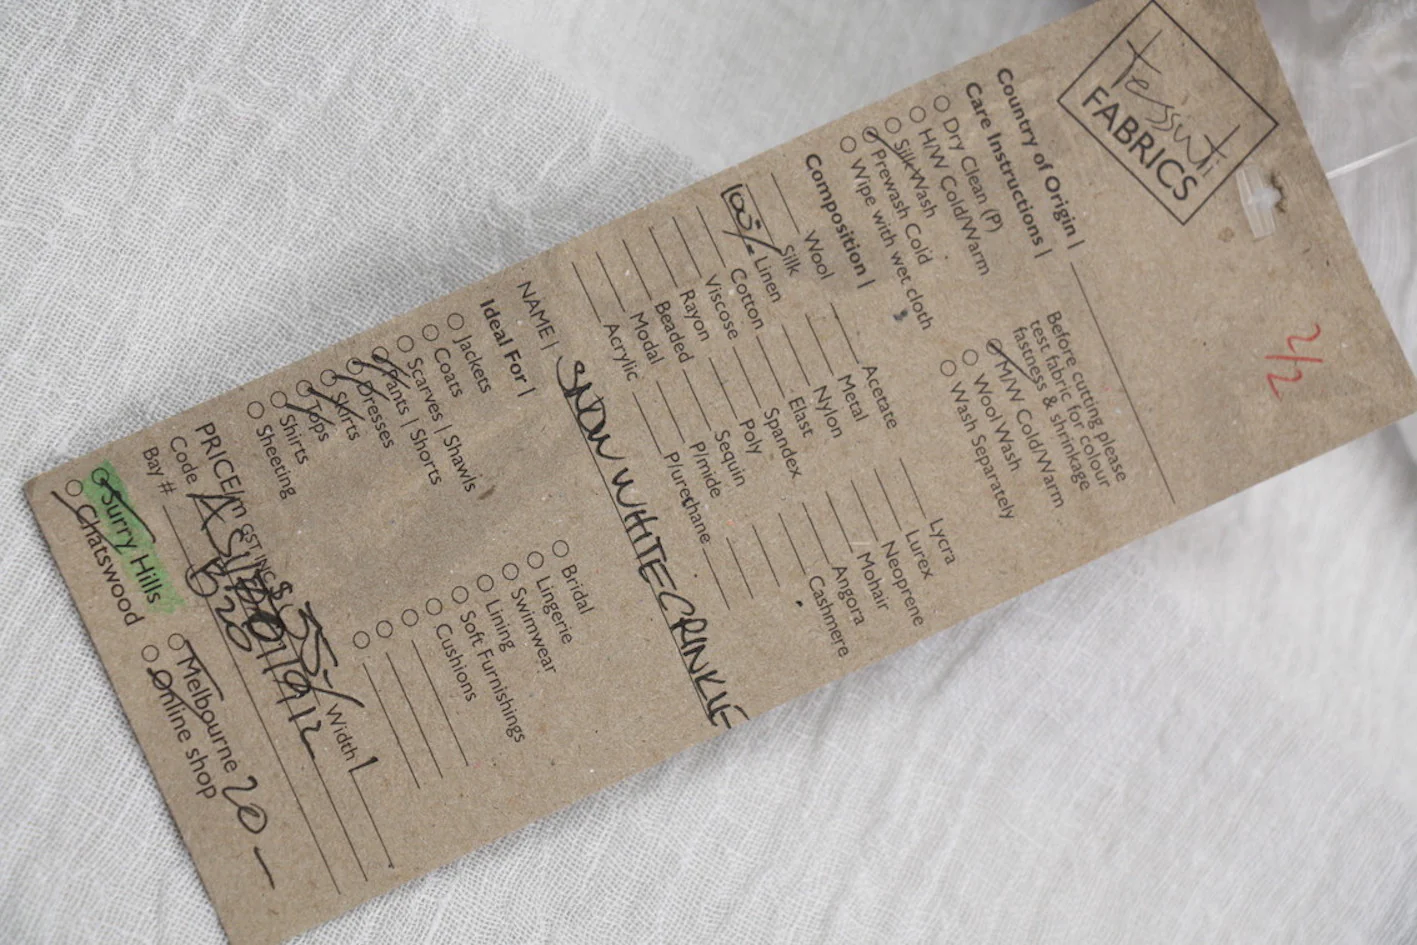 tessuti
FABRICS
2/2
Country of Origin |
Care Instructions |
Dry Clean (P)
H/W Cold/Warm
Silk Wash
Prewash Cold
Wipe with wet cloth
Before cutting please
test fabric for colour
fastness & shrinkage
M/W Cold/Warm
Wool Wash
Wash Separately
Composition |
Wool Acetate Lycra
Silk Metal Lurex
100% Linen Nylon Neoprene
Cotton Elast Mohair
Viscose Spandex Angora
Rayon Poly Cashmere
Beaded Sequin
Modal P/mide
Acrylic P/urethane
NAME | SNOW WHITE CRINKLE
Ideal For |
Jackets Bridal
Coats Lingerie
Scarves | Shawls Swimwear
Pants | Shorts Lining
Dresses Soft Furnishings
Skirts Cushions
Tops
Shirts
Sheeting
PRICE/m GST INC $ Width
Code
Bay #
Surry Hills Melbourne 20 –
Chatswood Online shop